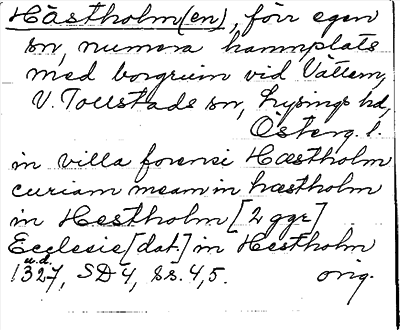 Hästholm(en), förr egen
sn, numera hamnplats
med borgruin vid Vättern,
V. Tollstads sn, Lysings hd,
Österg. l.
in villa forensi Hæstholm
curiam meam in hæstholm
in Hestholm [2 ggr]
Ecclesie [dat.] in Hestholm
u.d.
1327, SD 4, ss. 4, 5. orig.